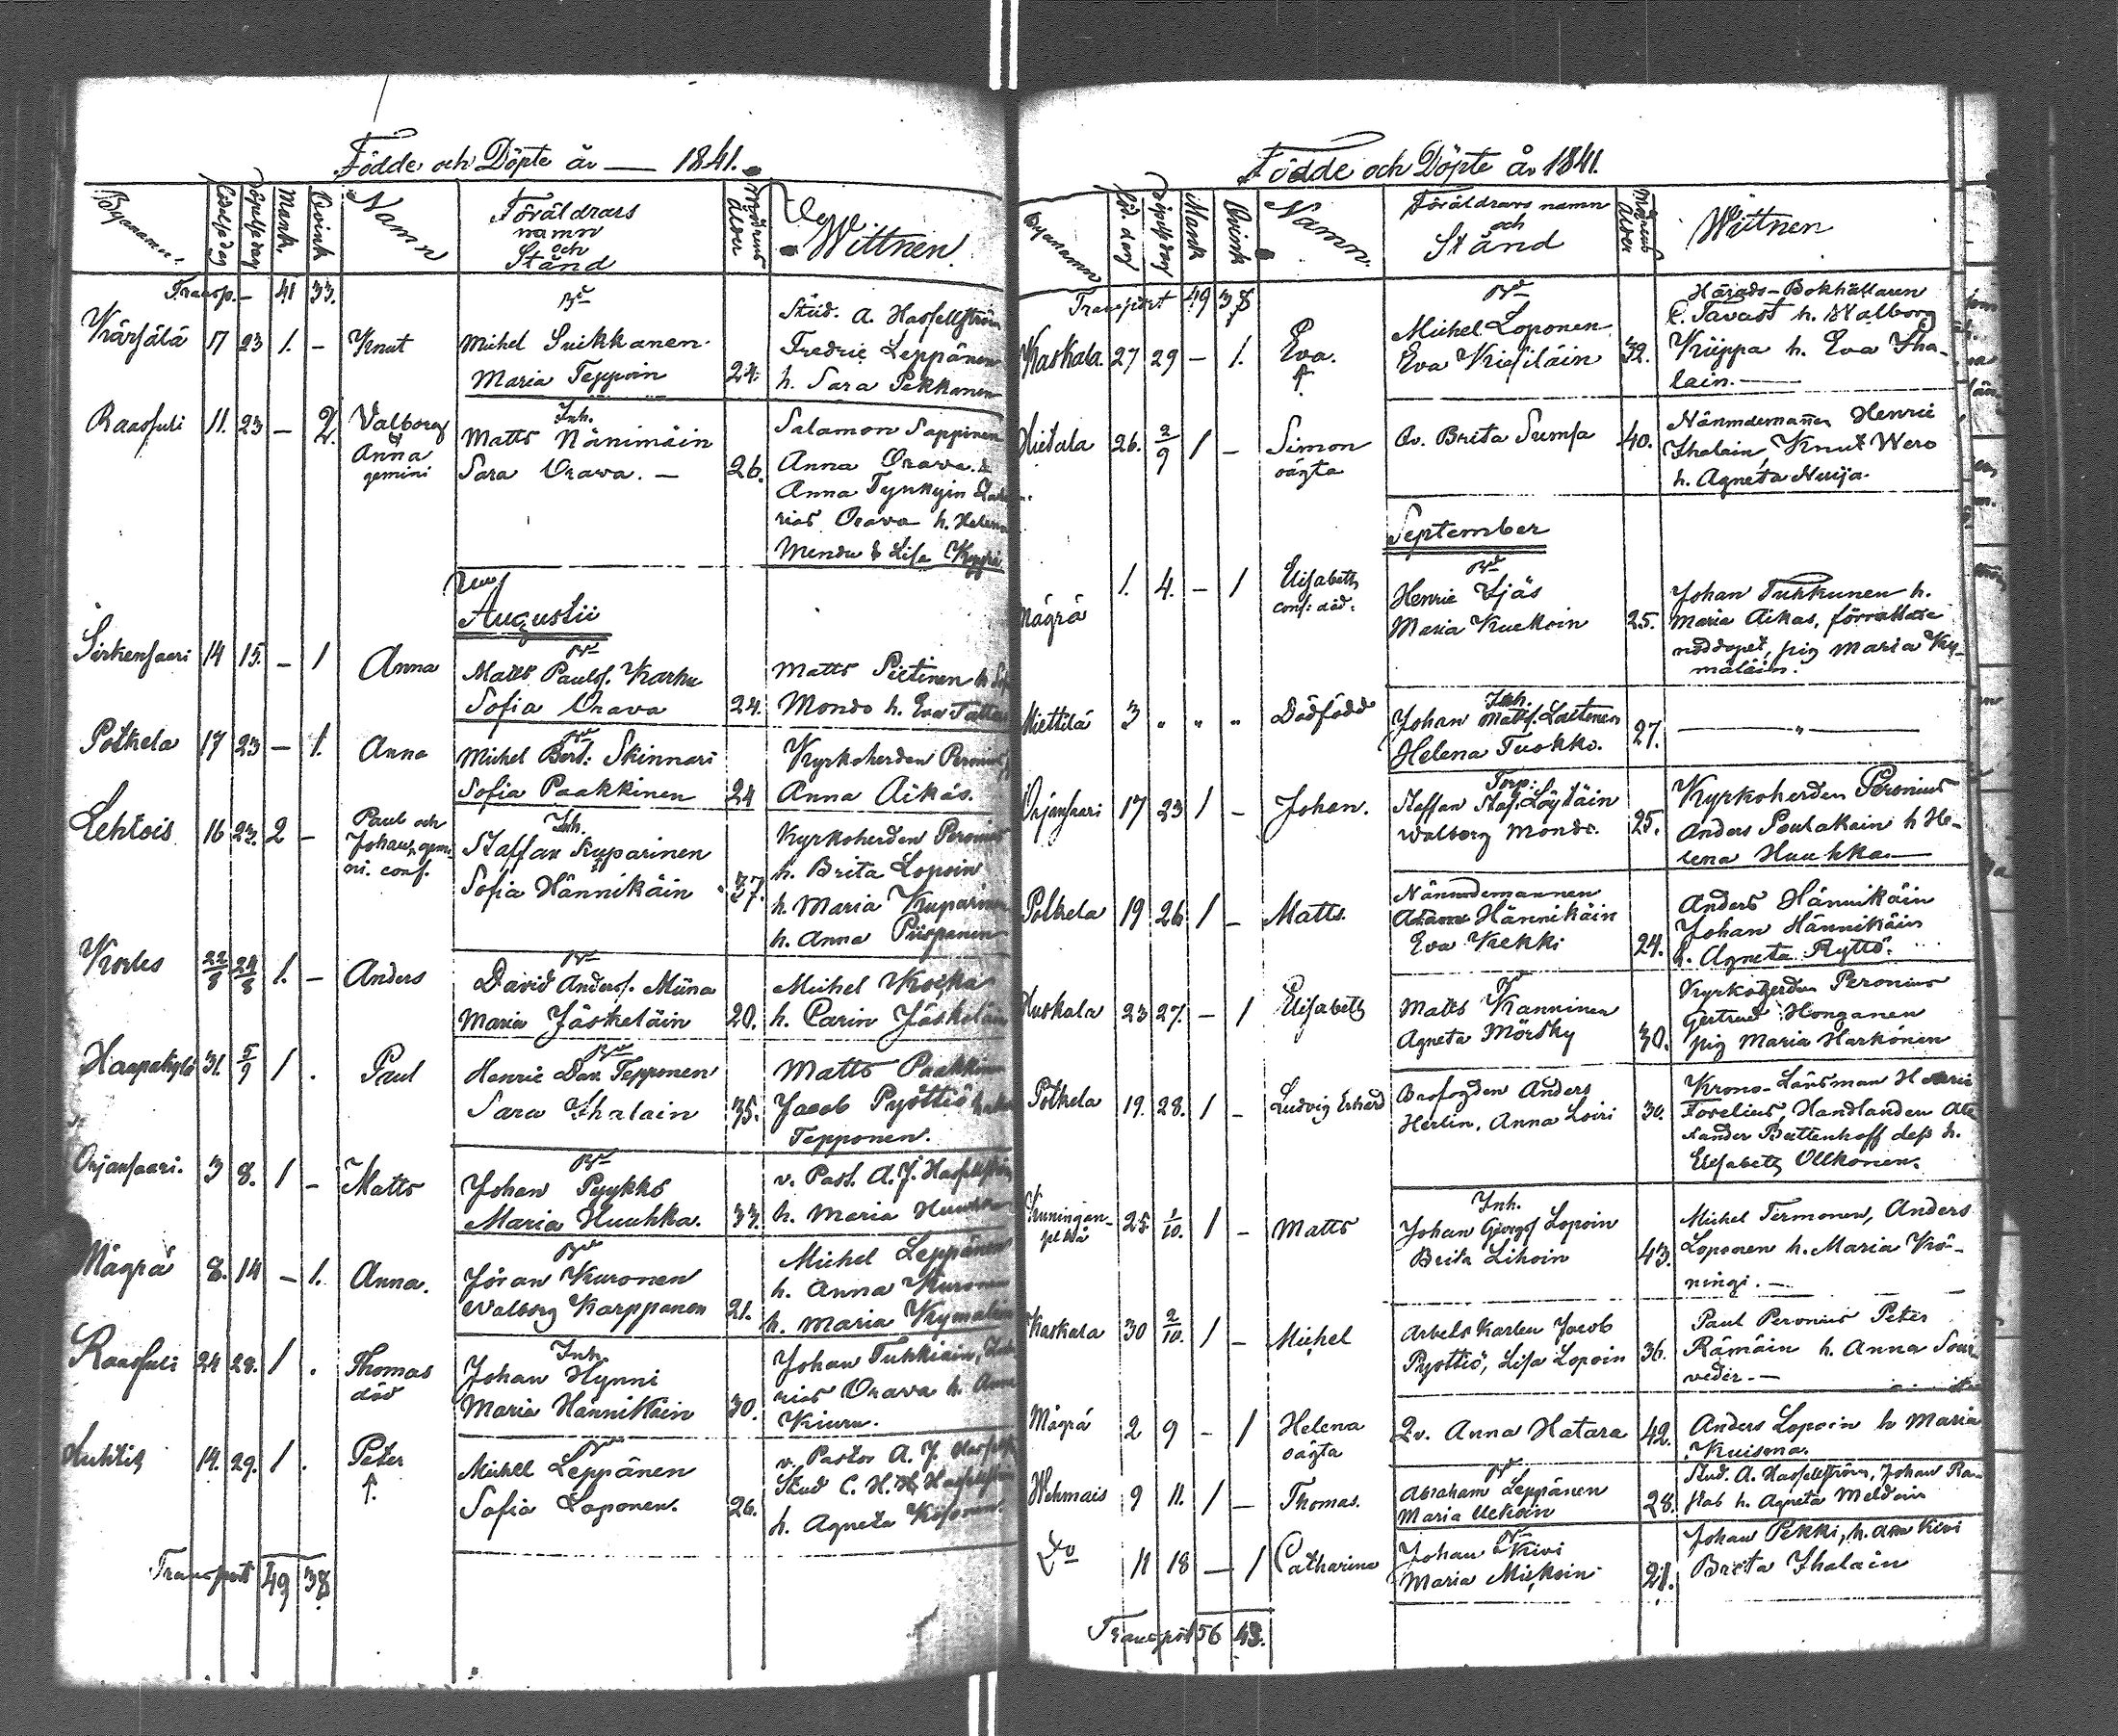 Födde och Döpte år — 1841.
Bynamn. Födelsedag Döpelsedag Mank. Qvink Namn Föräldrars namn och Stånd Modrens ålder Wittnen.
Transp. – 41 33.
Kärsälä 17 23 1. – Knut
Bd
Michel Suikkanen
Maria Teppoin 24.
Stud. A. Hassellström
Fredric Leppänen
h. Sara Pekkanen
Raasuli 11. 23 – 2. Valborg & Anna gemini
Inh.
Matts Nänimäin
Sara Orava. – 26.
Salamon Sappinen
Anna Orava. &
Anna Tynkyin
rias Orava h. Helena
Mendu & Lisa
Augustii
Sirkensaari 14 15. – 1 Anna
Bd
Matts Paulss. Karhu
Sofia Orava 24.
Matts Pietinen h.
Mondo h. Eva
Potkela 17 23 – 1. Anna
Bd
Michel Bert: Skinnari
Sofia Paakkinen 24
Kyrkoherden Peronius
Anna Aikäs.
Lehtois 16 23. 2 – Paul och Johan, gemini. conf.
Inh.
Staffan Kuparinen
Sofia Hännikäin 37.
Kyrkoherden Peronius
h. Brita Lopoin
h. Maria Kuparinen
h. Anna Piispanen
Kortes 22/8 24/8 1. – Anders
Bd
David Anderss. Miina
Maria Jäskeläin 20.
Michel
h. Carin Jäskeläin
Haapakylä 31. 5/9 1 . Paul
Bd
Henric Dav. Tepponen
Sara Ihalain 35.
Matts Paakkinen
Jacob Pyöttiö
Tepponen.
Orjansaari. 3 8. 1 – Matts
Bd
Johan Pyykkö
Maria Huuhka. 33.
v. Past. A. J. Hassellström
h. Maria Huuhka
Mägrä 8. 14 – 1. Anna.
Bd
Jöran Kuronen
Walborg Karppanen 21.
Michel Leppänen
h. Anna Kuronen
h. Maria Kymäläin
Raasuli 24 28. 1 . Thomas död
Inh.
Johan Hynni
Maria Hännikäin 30.
Johan Tuhkiain,
rias Orava h. Anna
Kiuru.
14. 29. 1 . Peter †
Bd
Michel Leppänen
Sofia Loponen. 26.
v. Pastor A. J.
Stud C. H. Hassellström
h. Agneta
Transport 49 38.
Födde och Döpte år 1841.
Bynamn Föd. dag Döpelsedag Mank Qvink Namn. Föräldrars namn och Stånd Modrens ålder Wittnen
Transport 49 38
Kaskala. 27 29 – 1. Eva. †
Bd
Michel Loponen
Eva Kiesiläin 32.
Härads-Bokhållaren
C. Tavast h. Walborg
Kiippa h. Eva Iha-
lain. —
Hietala 26. 2/9 1 – Simon oägta
Qv. Brita Sumsa 40.
Nämndemannen Henric
Ihalain, Knut Wero
h. Agneta Nuija.
September
Mägrä 1. 4. – 1 Elisabeth conf: död:
Bd
Henric Äjäs
Maria Kuekoin 25.
Johan Tuhkunen h.
Maria Aikas, förrättade
nöddopet, pig Maria Ky-
mäläin.
Miettilä 3 " " " Dödfödd
Inh.
Johan Matts. Laitinen
Helena Tuokko. 27.
— " —
Orjansaari 17 23 1 – Johan.
Torp:
Staffan Staf. Löytäin
Walborg Mondo. 25.
Kyrkoherden Peronius
Anders Poutakain h He-
lena Huuhka —
Potkela 19 26 1 – Matts.
Nämndemannen
Adam Hännikäin
Eva Kekki 24.
Anders Hännikäin
Johan Hännikäin
h. Agneta Ryttö.
23 27. – 1 Elisabeth
Bd
Matts Kanninen
Agneta Mörsky 30.
Kyrkoherden Peronius
Gertrud Honganen
pig Maria Harkonen
Potkela 19. 28. 1 – Ludvig Erhard
Brofogden Anders
Herlin, Anna Loiri 30.
Krono-Länsman Henric
Forelius, Handlanden Alex
xander Buttenhoff dess h.
Elisabeth Ollkonen.
Kuningan- 25. 1/10. 1 – Matts
Inh.
Johan Georgs Lopoin
Brita Lihoin 43.
Michel Termonen, Anders
Loponen h. Maria Krö-
ningi. –
Kaskala 30 2/10. 1 – Michel
Arbets Karlen Jacob
Pyöttiö, Lisa Lopoin 36.
Paul Peronius Peter
Rämäin h. Anna
veder. –
Mägrä 2 9 – 1 Helena oägta
Qv. Anna Hatara 42.
Anders Lopoin h Maria
Kuisma.
Wehmais 9 11. 1 – Thomas.
Bd
Abraham Leppänen
Maria Uekoin 28.
Stud. A. Hassellström, Johan
h. Agneta Meldoin
Do 11 18 – 1 Catharina
Bd
Johan Kivi
Maria Mickoin 21.
Johan Pekki, h. Ann Kivi
Brita Ihalain
Transport 56 43.